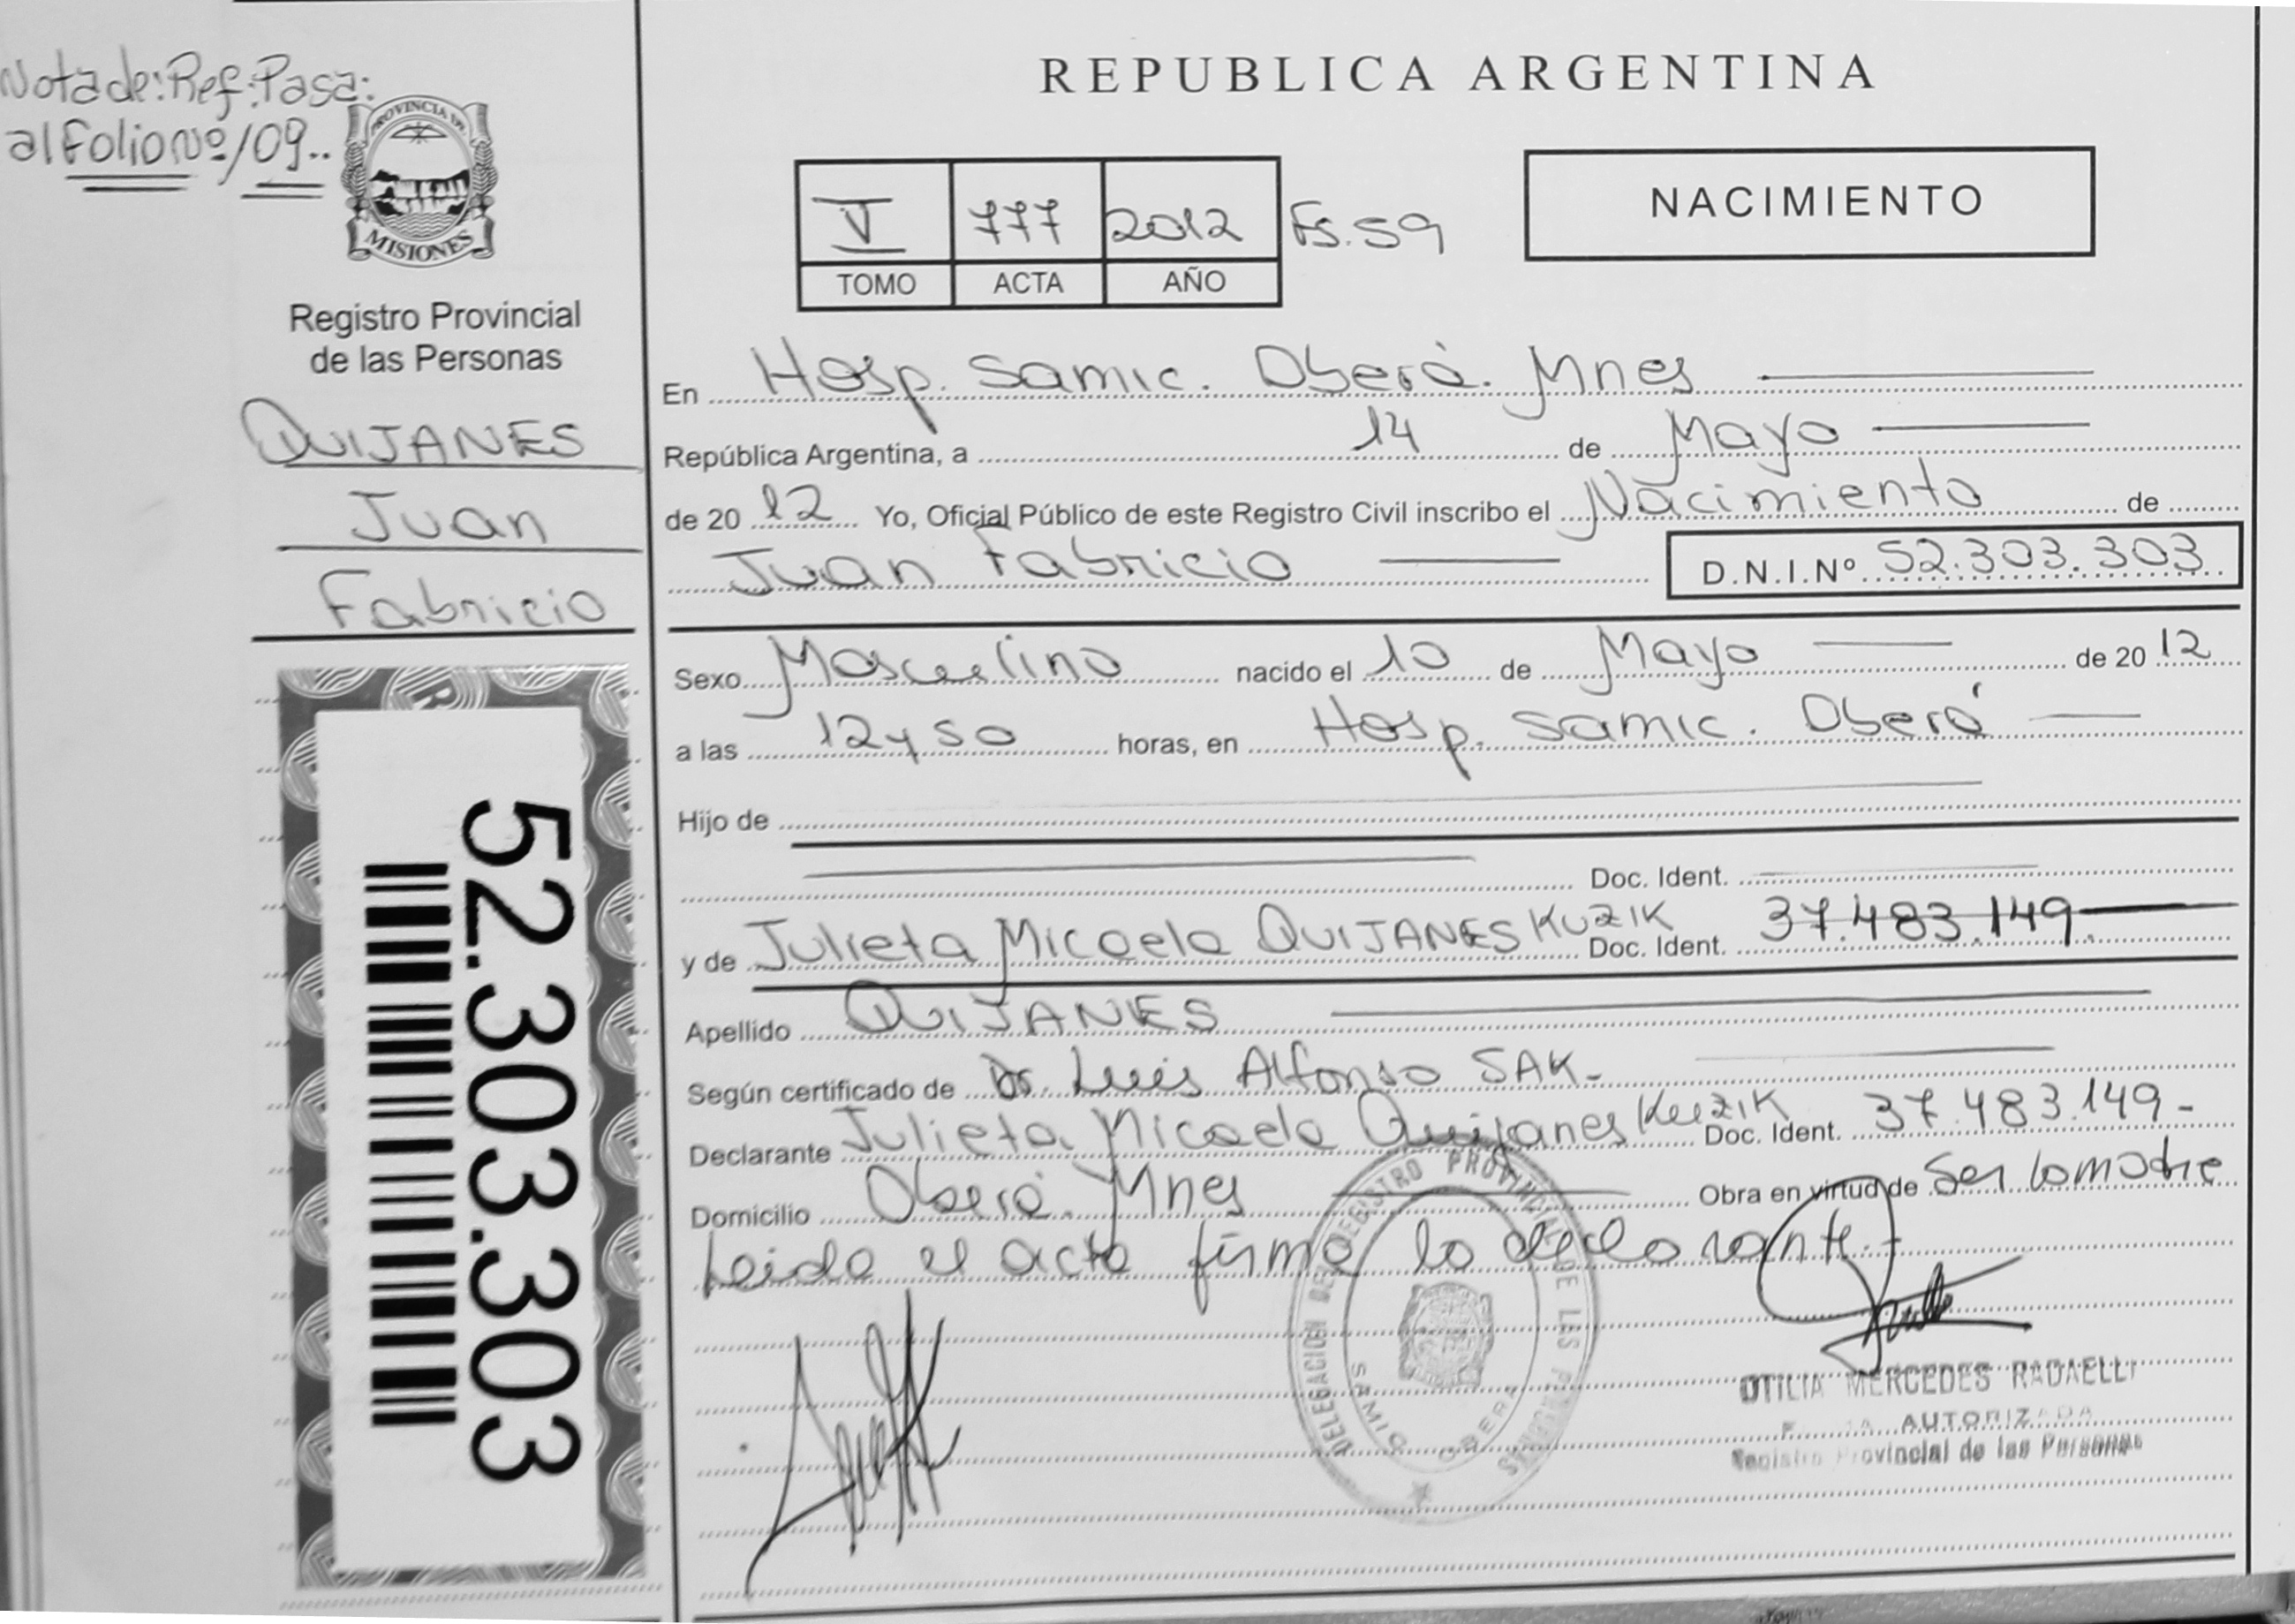 Nota de: Ref: Pasa:
al Folio Nº/09..
PROVINCIA DE
MISIONES
Registro Provincial
de las Personas
QUIJANES
Juan
Fabricio
52.303.303
REPUBLICA ARGENTINA
V 777 2012 Fs. 59
TOMO ACTA AÑO
NACIMIENTO
En Hosp. Samic. Oberá. Mnes
República Argentina, a 14 de Mayo
de 20 12 Yo, Oficial Público de este Registro Civil inscribo el Nacimiento de
Juan Fabricio D.N.I.Nº 52.303.303
Sexo Masculino nacido el 10 de Mayo de 20 12
a las 12 y 50 horas, en Hosp. Samic. Oberá
Hijo de
Doc. Ident.
y de Julieta Micaela QUIJANES KUZIK Doc. Ident. 37.483.149.
Apellido QUIJANES
Según certificado de Dr. Luis Alfonso SAK.
Declarante Julieta Micaela Quijanes Kuzik Doc. Ident. 37.483.149-
Domicilio Oberá. Mnes Obra en virtud de Ser la madre
Leida el acta firma la declarante.-
DELEGACION DEL REGISTRO PROVINCIAL DE LAS PERSONAS
SAMIC OBERA
OTILIA MERCEDES RADAELLI
AUTORIZADA
Registro Provincial de las Personas